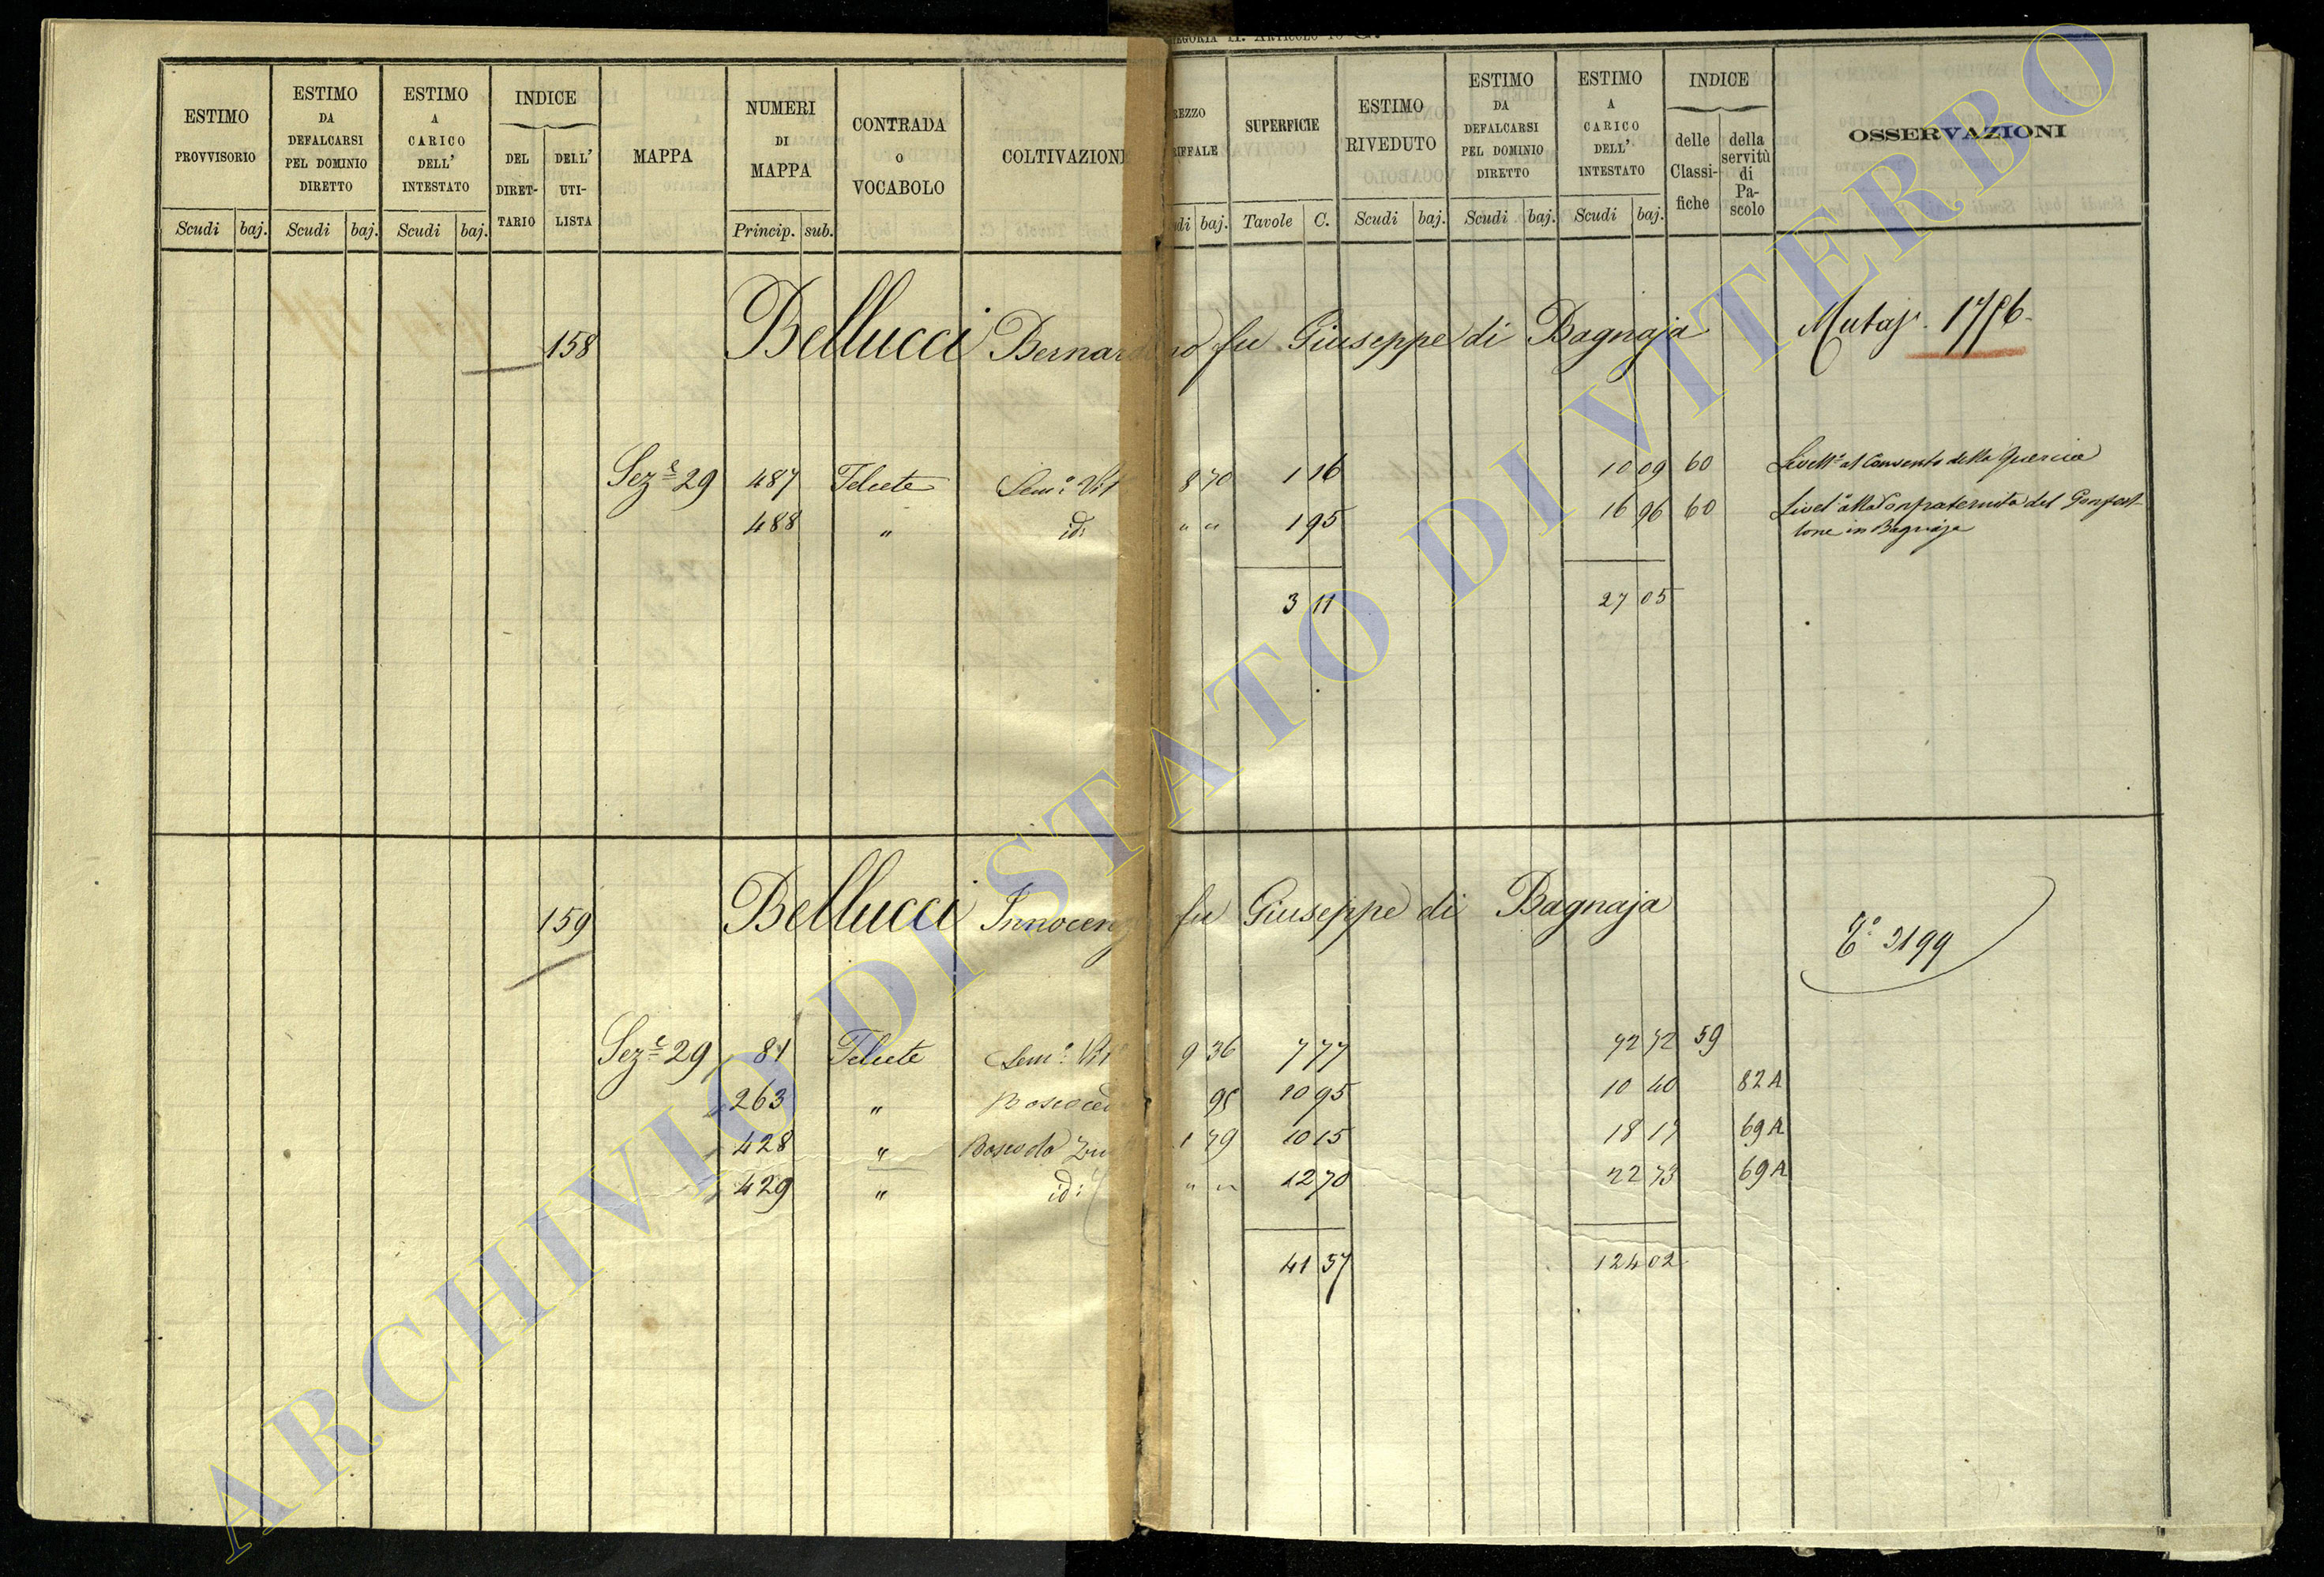 ESTIMO PROVVISORIO
Scudi baj.
ESTIMO DA DEFALCARSI PEL DOMINIO DIRETTO
Scudi baj.
ESTIMO A CARICO DELL' INTESTATO
Scudi baj.
INDICE
DEL DIRET-TARIO
DELL' UTI-LISTA
MAPPA
NUMERI DI MAPPA
Princip. sub.
CONTRADA O VOCABOLO
COLTIVAZION
REZZO
RIFFALE
di baj.
SUPERFICIE
Tavole C.
ESTIMO RIVEDUTO
Scudi baj.
ESTIMO DA DEFALCARSI PEL DOMINIO DIRETTO
Scudi baj.
ESTIMO A CARICO DELL' INTESTATO
Scudi baj.
INDICE
delle Classi-fiche
della servitù di Pa-scolo
OSSERVAZIONI
158 Bellucci Bernardino fu Giuseppe di Bagnaja
Sez.e 29 487 Felcete Sem.o Vit 8 70 1 16 10 09 60 Livell.o al Convento della Quercia
488 " id: " " 1 95 16 96 60 Livel.o alla Confraternita del
in Bagnaja
3 11 27 05
159 Bellucci Innocenz fu Giuseppe di Bagnaja 2199
Sez.e 29 81 Felcete Sem.o Vit 9 36 7 77 72 72 59
263 " Bosco ced 95 10 95 10 40 82A
428 " Bosco da 1 79 10 15 18 17 69A
429 " id: " " 12 70 22 73 69A
41 57 124 02
ARCHIVIO DI STATO DI VITERBO